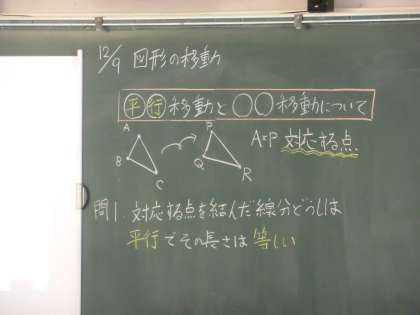 12/9 図形の移動
平行移動と○○移動について
A P A=P 対応する点
B Q
C R
問1. 対応する点を結んだ線分どうしは
平行でその長さは等しい